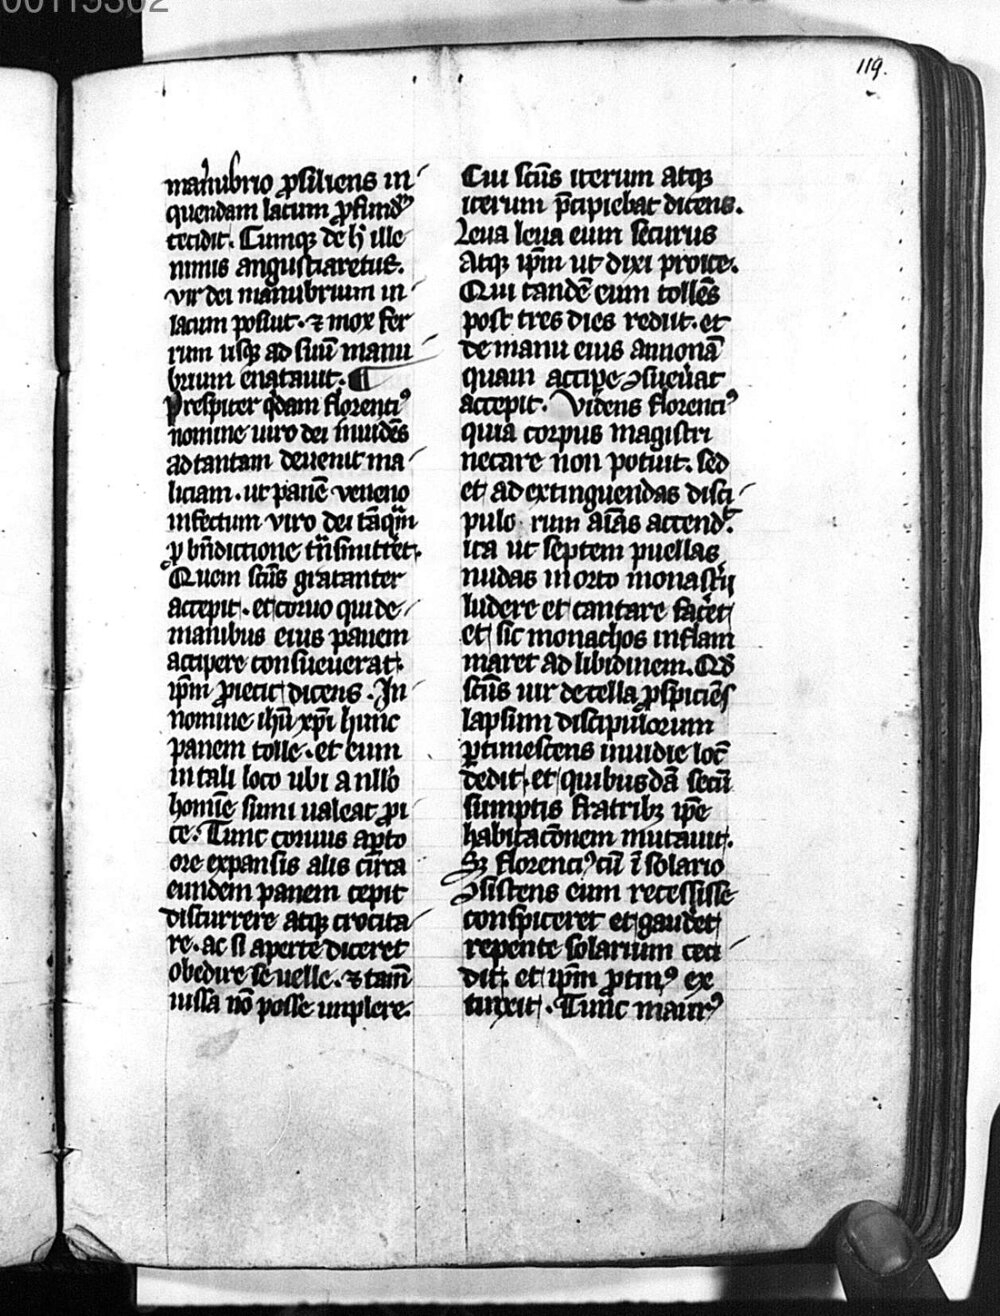 00115302
119.
manubrio ꝓsiliens in
quendam lacum ꝓfund᷒
cecidit. Cumqꝫ de hͥ ille
nimis angustiaretur.
vir dei manubrium in
lacum posuit. ⁊ mox fer
rum usqꝫ ad suū manu
brium enatauit. ¶
Prespiter qͥdam florentiꝰ
nomine uiro dei inuidēs
ad tantam deuenit ma
liciam. ut panē veneno
infectum viro dei tāqͣm
ꝓ bn̄dictione tͣnsmitteret.
Quem sc̄us gratanter
accepit. et coruo qui de
manibus eius panem
accipere consueuerat.
ip̄m ꝓiecit dicens. In
nomine ih̄u xp̄i hunc
panem tolle. et eum
in tali loco ubi a nullo
homīe sumi ualeat ꝓi
ce. Tunc coruus apͭo
ore expansis alis circa
eundem panem cepit
discurrere atqꝫ crocita
re. ac si aperte diceret
obedire se uelle. ⁊ tam̄
iussa nō posse implere.
Cui sc̄us iterum atqꝫ
iterum p̄cipiebat dicens.
Leua leua eum securus
atqꝫ ip̄m ut dixi proice.
Qui tandē eum tollēs
post tres dies rediit. et
de manu eius annonā
quam accipe ꝯsueuat
accepit. Videns florentiꝰ
quia corpus magistri
necare non potuit. sed
et ad extinguendas disci
pulo rum aīas accend᷒.
ita ut septem puellas
nudas in orto monastͥij
ludere et cantare facet
et sic monachos inflam
maret ad libidinem. Qd̄
sc̄us uir de cella ꝓspiciēs
lapsum discipulorum
ꝑtimescens inuidie locͫ
dedit. et quibusdā secū
sumptis fratribꝫ ip̄e
habitac̄onem mutauit.
Sꝫ florentiꝰ cū ī solario
ꝯsistens eum recessisse
conspiceret et gaudet
repente solarium ceci
dit. et ip̄m ꝓtinꝰ ex
tinxit. Tunc maurꝰ